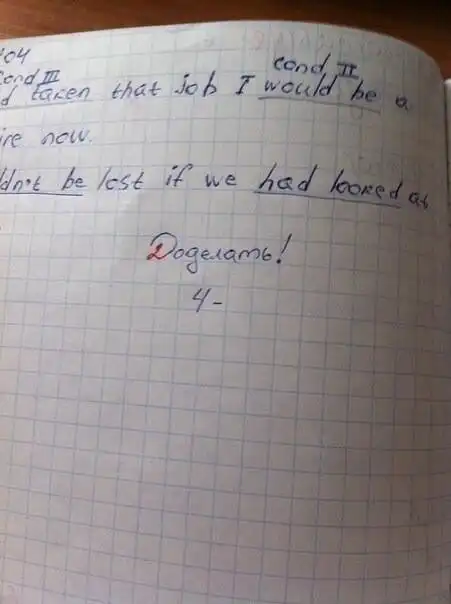 04
cond III
cond II
d taken that job I would be a
ire now.
ldn't be lost if we had looked at
Доделать!
4-